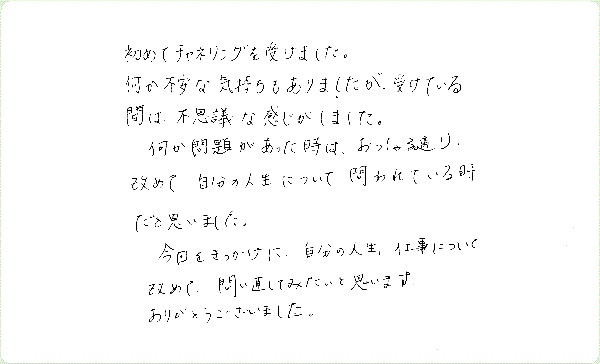 初めてチャネリングを受けました。
何か不安な気持ちもありましたが、受けている
間は、不思議な感じがしました。
何か問題があった時は、おっしゃる通り、
改めて自分の人生について問われている時
だと思いました。
今回をきっかけに、自分の人生、仕事について
改めて、問い直してみたいと思います。
ありがとうございました。